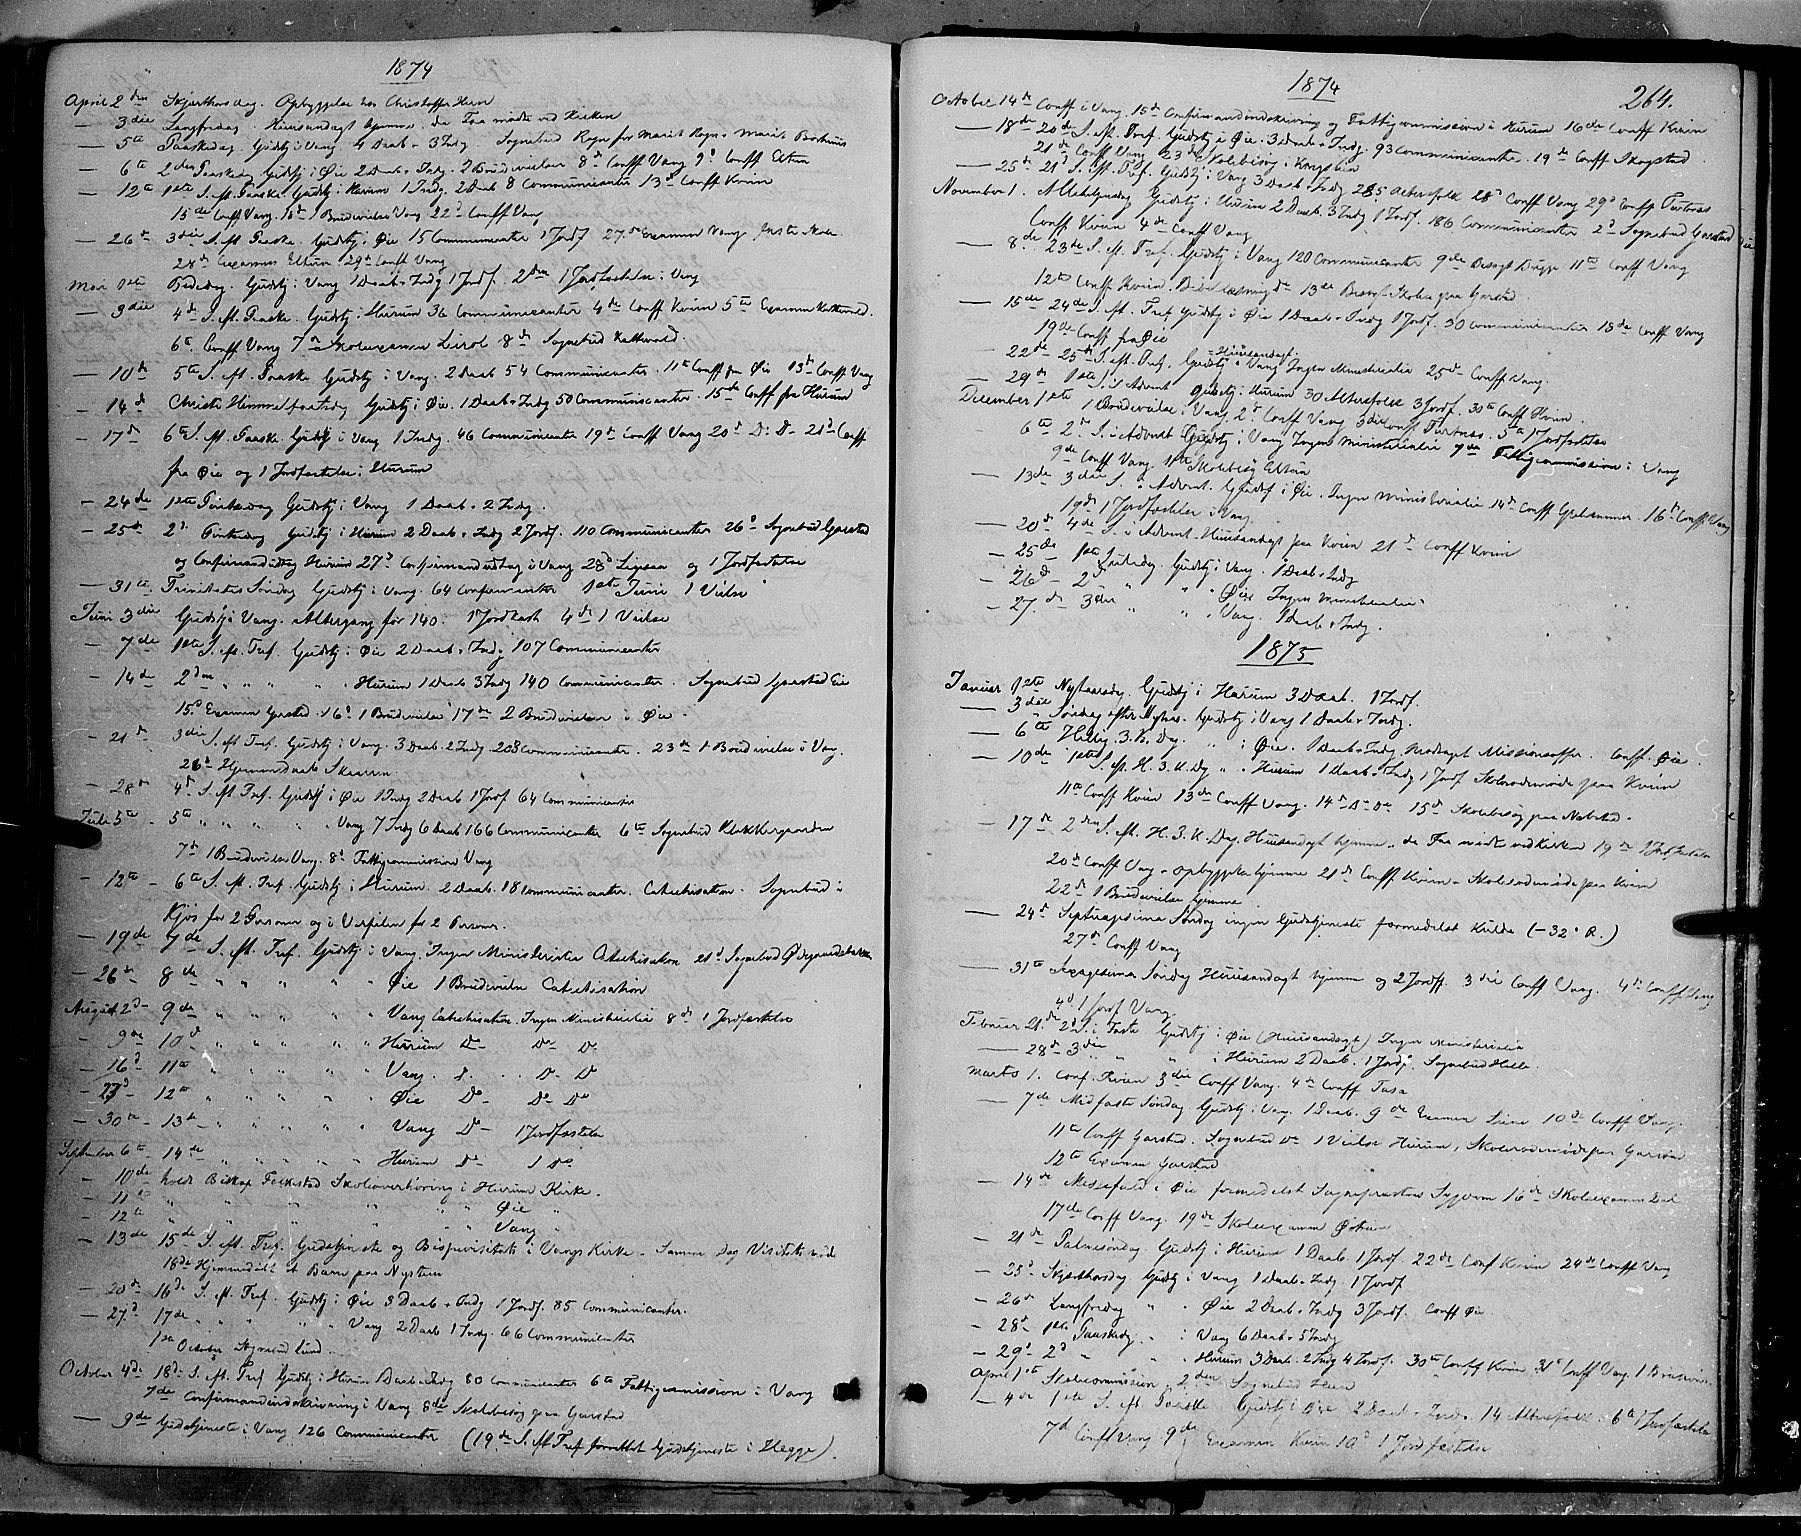 1874
April 2den Skjærthorsdag. Opbyggelse hos Christoffer Heen
— 3die Langfredag. Huusandagt hjemme, da Faa mødte ved Kirken
— 5te Paaskedag. Gudstj i Vang 4 Daab. 3 Indg. Sognebud Rogn for Marit Rogn
— 6te 2den Paaskedag Gudstj i Øie 2 Daab. Indg. 2 Brudevielser 8de Conff Vang 9d Conff Eltun
— 12te 1ste S. eft. Paaske. Gudstj i Hurum 1 Indg. 2 Daab 8 Communicanter 13d Conff Kvien
15de Conff Vang. 18de 1 Brudevielse Vang 22d Conff Vang
— 26de 3die S. eft Paaske. Gudstj i Øie 15 Communicanter 1 Jordf 27de Examen Vangs faste Skole
28de Examen Eltun 29de Conff Vang
Mai 1ste Bededag. Gudstj i Vang 1 Daab. Indg 1 Jordf. 2den 1 Jordfæstelse i Vang
— 3die 4de S. eft. Paaske. Gudstj i Hurum 36 Communicanter 4de Conff Kvien 5te Examen Kattevold.
6te Conff Vang 7de Skoleexamen 8de Sognebud Kattevold.
— 10de 5te S. eft. Paaske Gudstj i Vang. 2 Daab 54 Communicanter. 11te Conff fra Øie 13de Conff Vang
— 14de Christi Himmelfartsdag Gudstj i Øie. 1 Daab. Indg 50 Communicanter. 15de Conff fra Hurum
— 17de 6te S. eft. Paaske. Gudstj i Vang 1 Indg. 46 Communicanter 19de Conff Vang 20d Do Do 21d Conff
fra Øie og 1 Jordfæstelse i Hurum
— 24de 1ste Pintsedag Gudstj i Vang 1 Daab. 2 Indg.
— 25de 2d Pintsedag Gudstj i Hurum 2 Daab. Indg 2 Jordf. 110 Communicanter 26d Sognebud Garstad
og Confirmandudtag Hurum 27d Confirmandudtag i Vang 28d og 1 Jordfæstelse
— 31te Trinitatis Søndag Gudstj i Vang. 64 Confirmanter 1ste Juni 1 Vielse
Juni 3die Gudstj i Vang. Altergang for 140. 1 Jordkast 4de 1 Vielse
— 7de 1ste S. eft. Tref. Gudstj i Øie 2 Daab. Indg 107 Communicanter
— 14de 2den " " " " Hurum 1 Daab 3 Indg 140 Communicanter. Sognebud Garstad Eie
15d Examen Garstad. 16d 1 Brudevielse 17de 2 Brudevielser i Øie.
— 21de 3die S. eft Tref. Gudstj i Vang. 3 Daab 2 Indg. 208 Communicanter. 23de 1 Brudevielse i Vang.
26de Hjemmedaab Skaaren.
— 28de 4de S. eft Tref. Gudstj i Øie 1 Indg 2 Daab 1 Jordf 64 Communicanter
Juli 5te 5te " " " " Vang 7 Indg 6 Daab 166 Communicanter 6te Sognebud
7de 1 Brudevielse Vang. 8de Fattigcommission Vang
— 12te 6te S. eft. Tref. Gudstj i Hurum. 2 Daab. 18 Communicanter. Catechisation. Sognebud i
Kjøs for 2 Personer og i for 2 Personer.
— 19de 7de S. eft. Tref. Gudstj i Vang. Ingen Ministerialia Catechisation 21d Sognebud
— 26de 8de " " " " Øie 1 Brudevielse Catechisation
August 2d 9de " " " " Vang Catechisation. Ingen Ministerialia 8de 1 Jordfæstelse
— 9de 10d " " " " Hurum Do Do Do
— 16d 11te " " " " Vang. Do Do
— 23d 12te " " " " Øie Do Do Do
— 30te 13te " " " " Vang Do 1 Jordfæstelse
September 6te 14de " " " " Hurum Do 1 Do
— 10de holdt Biskop Folkestad Skoleoverhøring i Hurum Kirke.
— 11te " " " " " Øie "
— 12te " " " " " Vang "
— 13de 15de S. eft. Tref. Gudstjeneste og Bispevisitats i Vangs Kirke. Samme Dag
18de Hjemmedøbt et Barn paa Nystuen
— 20de 16de S. eft. Tref. Gudstj i Øie 3 Daab. Indg 1 Jordf. 85 Communicanter.
— 27d 17de " " " " Vang 2 Daab 1 Indg. 66 Communicanter
1ste October Sognebud Lund.
October 4de 18de S. eft. Tref Gudstj i Hurum Daab. Indg 80 Communicanter 6te Fattigcommission i Vang
7de Confirmandindskrivning i Vang 8de Skolebesøg paa Garstad
— 9de Gudstjeneste i Vang 126 Communicanter (19de S. eft Tref forrettet Gudstjeneste i Hegge).
1874
264.
October 14de Conff i Vang. 15de Confirmandindskrivning og Fattigcommission i Hurum 16de Conff Kvien
— 18de 20de S. eft. Tref. Gudstj i Øie. 3 Daab. Indg. 93 Communicanter. 19de Conff Skogstad
21de Conff Vang 23de Skolebesøg i
— 25de 21d S. eft. Tref. Gudstj i Vang 3 Daab. Indg 285 Altersfolk 28d Conff Vang 29d Conff
November 1. Allehelgensdag Gudstj i Hurum 2 Daab. 3 Indg 1 Jordf. 186 Communicanter 2d Sognebud Garstad Eie
Conff Kvien 4de Conff Vang
— 8de 23de S. eft. Tref. Gudstj i Vang 120 Communicanter 9de Besøgt 11te Conff Vang
12te Conff Kvien. Bibellæsning Do 13de Besøgt Skolen paa Garstad.
— 15de 24de S. eft. Tref Gudstj i Øie 1 Daab. Indg 1 Jordf. 30 Communicanter 18de Conff Vang
19de Conff fra Øie
— 22de 25de S. eft. Tref. Gudstj Huusandagt. i Vang Ingen Ministerialia 25de Conff Vang.
— 29de 1ste S. i Advent Gudstj i Hurum 30 Altersfolk 3 Jordf. 30te Conff Kvien.
December 1ste 1 Brudevielse i Vang. 2d Conff Vang 3die Conff 5te 1 Jordfæstelse
6te 2d S. i Advent Gudstj i Vang Ingen Ministerialia 7de Fattigcommission i Vang
9de Conff Vang 11te Skolebesøg Eltun
— 13de 3die S. i Advent. Gudstj i Øie. Ingen Ministerialia 14de Conff 16de Conff Vang
19de 1 Jordfæstelse i Vang
— 20de 4de S. i Advent. Huusandagt paa Kvien 21de Conff Kvien
— 25de 1ste Juledag. Gudstj i Vang. 1 Daab. Indg
— 26de 2d " " " Øie Ingen Ministerialia
— 27de 3die " " " Vang. 1 Daab. Indg.
1875
Januar 1ste Nytaarsdg. Gudstj i Hurum 3 Daab. 1 Jordf.
— 3die Søndag efter Nytaar. Gudstj i Vang 1 Daab. Indg.
— 6te Hellig. 3. K. Dag. " i Øie. 1 Daab. Indg modtaget Missionsoffer. Conff. Øie.
— 10de 1ste S. eft. H. 3. K. Dg " " Hurum 1 Daab. Indg 1 Jordf Skoleraadsmøde paa Kvien
11te Conff Kvien 13de Conff Vang. 14de Do Do 15de Skolebesøg paa Nølstad.
— 17de 2den S. eft. H. 3. K. Dag. Huusandagt hjemme, da Faa mødte ved Kirken 19de 1 Jordfæstelse
20de Conff Vang. Opbyggelse hjemme 21de Conff Kvien. Skoleraadsmøde paa Kvien
22de 1 Brudevielse hjemme
— 24de Septuagesima Søndag ingen Gudstjeneste formedelst Kulde (– 32° R.)
27de Conff Vang
— 31te Sexagesima Søndag Huusandagt hjemme og 2 Jordff. 3die Conff Vang. 4de Conff Vang
4d 1 Jordf Vang
Februar 21de 2d S. i Faste Gudstj i Øie (Huusandagt) Ingen Ministerialia
— 28de 3die " " " i Hurum 2 Daab. 1 Jordf. Sognebud
Marts 1. Conf. Kvien 3die Conff Vang. 4de Conff
— 7de Midfaste Søndag Gudstj i Vang. 1 Daab. 9de Examen 10de Conff Vang.
11te Conff Garstad. Sognebud Do 1 Vielse Hurum, Skoleraadsmøde paa Garstad
12te Examen Garstad
— 14de Messefald i Øie formedelst Sognepræstens Sygdom 16de Skoleexamen
17de Conff Vang. 19de Skoleexamen
— 21de Palmesøndag Gudstj i Hurum 1 Daab. 1 Jordf. 22de Conf Kvien 24de Conff Vang
— 25d Skjærthorsdag Gudstj i Vang 1 Daab. Indg 1 Jordf
— 26de Langfredag " " Øie 2 Daab. Indg 3 Jordf. Conff Øie
— 28de 1ste Paaskedg. " i Vang 6 Daab. 5 Indg
— 29d 2d " " " Hurum 3 Daab. 2 Indg 4 Jordf. 30te Conff Kvien 31te Conff Vang. 1 Brudevielse
April 1ste Skolecommission 2den Sognebud Heen
— 4de 1ste S. eft Paaske Gudstj i Øie 2 Daab. Indg. 14 Altersfolk. 6te 1 Jordfæstelse
7d Conff Vang 9de Examen Kvien 10d 1 Jordfæstelse